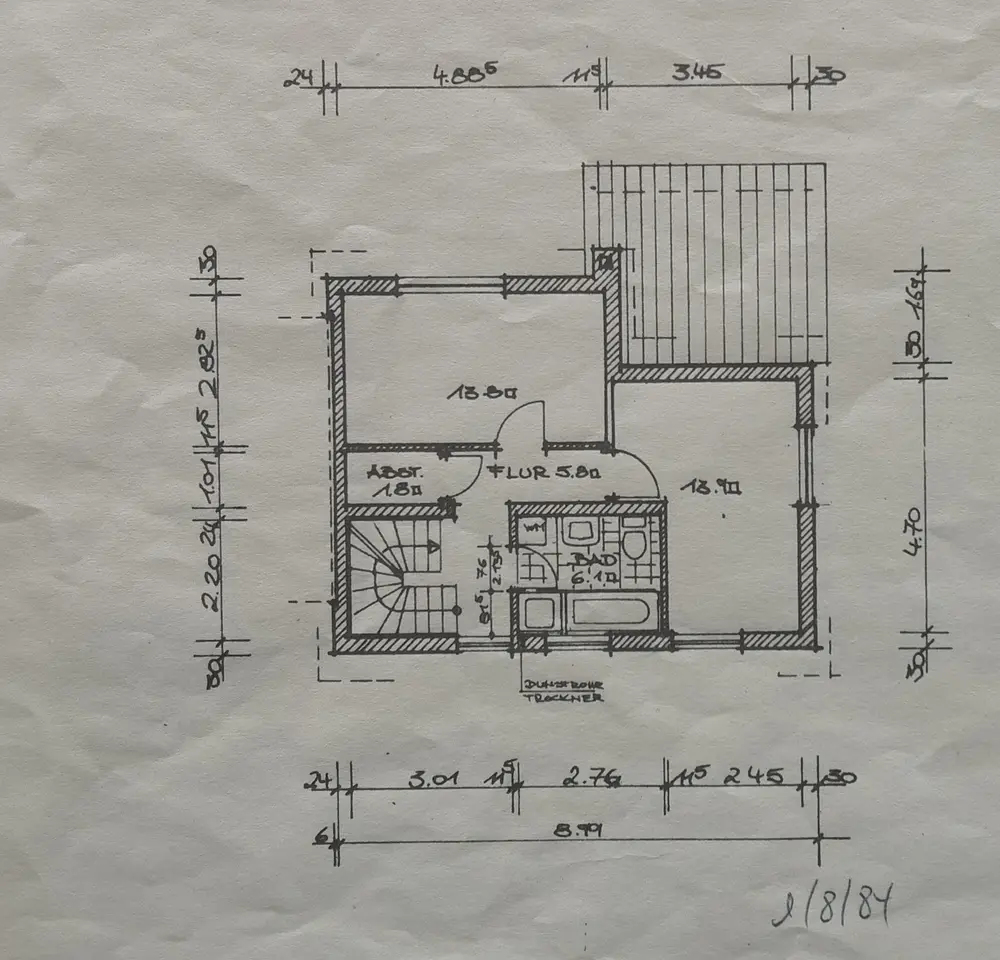 24 4.88⁵ 11⁵ 3.45 30
30
2.82⁵
11⁵
1.01
24
2.20
30
1.69
30
4.70
30
13.8
ABST.
1.8
FLUR 5.8
13.9
BAD
6.1
76
2.13⁵
81⁵
DUNSTROHR
TROCKNER
24 3.01 11⁵ 2.76 11⁵ 2.45 30
6 8.99
/8/84